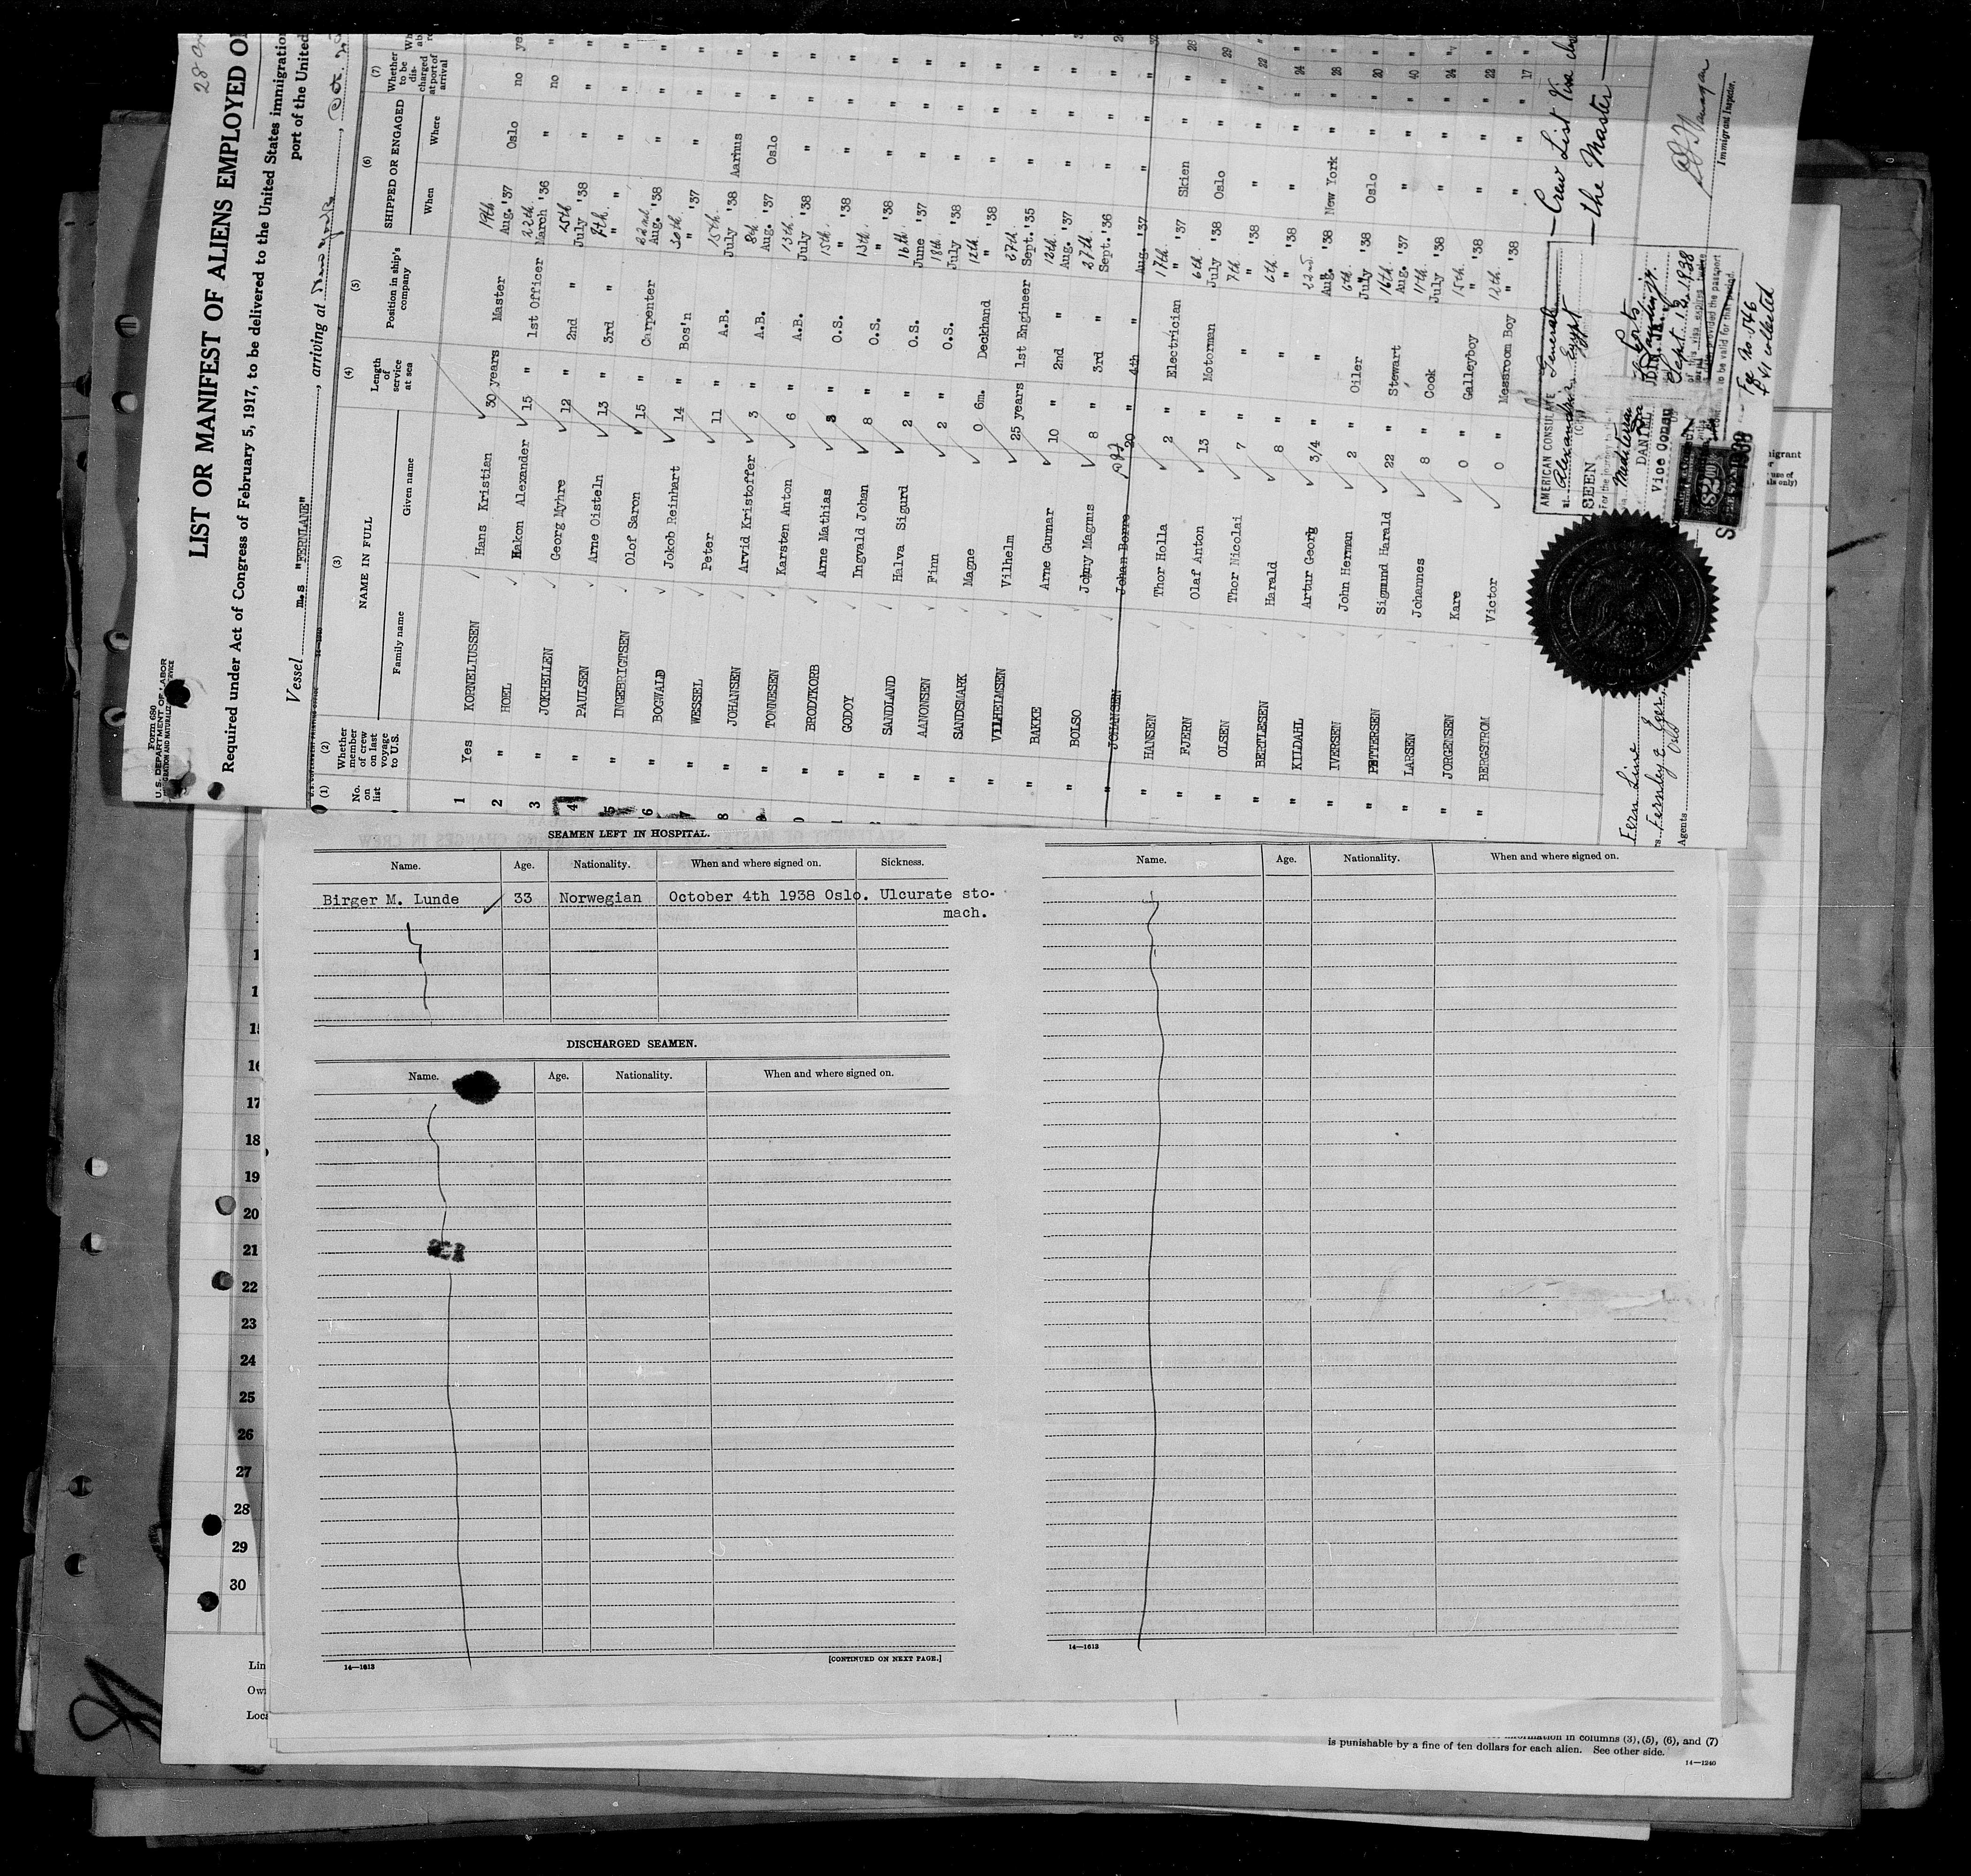 28
LIST OR MANIFEST OF ALIENS EMPLOYED O
Required under Act of Congress of February 5, 1917, to be delivered to the United States immigration
port of the United
Form 680
U.S. DEPARTMENT OF LABOR
Vessel m.s "FERNLANE", arriving at New York
(1) (2) (3) (4) (5) (6) (7)
No. on list
Whether member of crew on last voyage to U.S.
NAME IN FULL
Family name Given name
Length of service at sea
Position in ship's company
SHIPPED OR ENGAGED
When Where
Whether to be discharged at port of arrival
1 Yes KORNELIUSSEN Hans Kristian 30 years Master 19th Aug. '37 Oslo no
2 " HOEL Hakon Alexander 15 " 1st Officer 22th March '36 " no
3 " JOKHELLEN Georg Myhre 12 " 2nd " 25th July '38 " "
4 " PAULSEN Arne Oistein 13 " 3rd " 8th " " " "
5 " INGEBRIGTSEN Olof Saron 15 " Carpenter 22nd Aug. '38 " "
6 " BOGWALD Jokob Reinhart 14 " Bos'n 30th " '37 " "
7 " WESSEL Peter 11 " A.B. 15th July '38 Aarhus "
8 " JOHANSEN Arvid Kristoffer 3 " A.B. 8th Aug. '37 Oslo "
" TONNESEN Karsten Anton 6 " A.B. 13th July '38 " "
0 " BRODTKORB Arne Mathias 3 " O.S. 15th " '38 " "
1 " GODOY Ingvald Johan 8 " O.S. 13th " '38 " "
" SANDLAND Halva Sigurd 2 " O.S. 16th June '37 " "
" AANONSEN Finn 2 " O.S. 18th July '38 " "
" SANDSMARK Magne 0 6m. Deckhand 12th " '38 " "
" VILHELMSEN Vilhelm 25 years 1st Engineer 27th Sept. '35 " "
" BAKKE Arne Gunnar 10 " 2nd " 12th Aug. '37 " "
" BOLSO Johny Magnus 8 " 3rd " 27th Sept. '36 " "
" JOHANSEN Johan Borre 20 " 4th " Aug. '37 " "
" HANSEN Thor Holla 2 " Electrician 17th " '37 Skien " 28
" FJERN Olaf Anton 13 " Motorman 6th July '38 Oslo " 29
" OLSEN Thor Nicolai 7 " " 7th " '38 " " 22
" BERTLESEN Harald 8 " " 6th " '38 " " 24
" KILDAHL Artur Georg 3/4 " " 22nd Aug. '38 New York " 28
" IVERSEN John Herman 2 " Oiler 6th July '38 Oslo " 20
" PETTERSEN Sigmund Harald 22 " Stewart 16th Aug. '37 " " 40
" LARSEN Johannes 8 " Cook 11th July '38 " " 24
" JORGENSEN Kare 0 " Galleyboy 15th " '38 " " 22
" BERGSTROM Victor 0 " Messroom Boy 12th " '38 " " 17
Crew List Visa
the Master
Immigrant Inspector.
AMERICAN CONSULATE General
at Alexandria Egypt
SEEN
For the journey to the
via Mediterranean Ports
DANIEL
Vice Consul
Sept. 12, 1938
Fee No. 546
$2.00
Fern Line
Fearnley & Eger
Oslo
Agents
SEAMEN LEFT IN HOSPITAL.
Name. Age. Nationality. When and where signed on. Sickness.
Birger M. Lunde 33 Norwegian October 4th 1938 Oslo. Ulcurate sto-
mach.
DISCHARGED SEAMEN.
Name. Age. Nationality. When and where signed on.
14—1613
[CONTINUED ON NEXT PAGE.]
Name. Age. Nationality. When and where signed on.
14—1613
15
16
17
18
19
20
21
22
23
24
25
26
27
28
29
30
Lin
Ow
Loca
information in columns (3), (5), (6), and (7)
is punishable by a fine of ten dollars for each alien. See other side.
14—1240